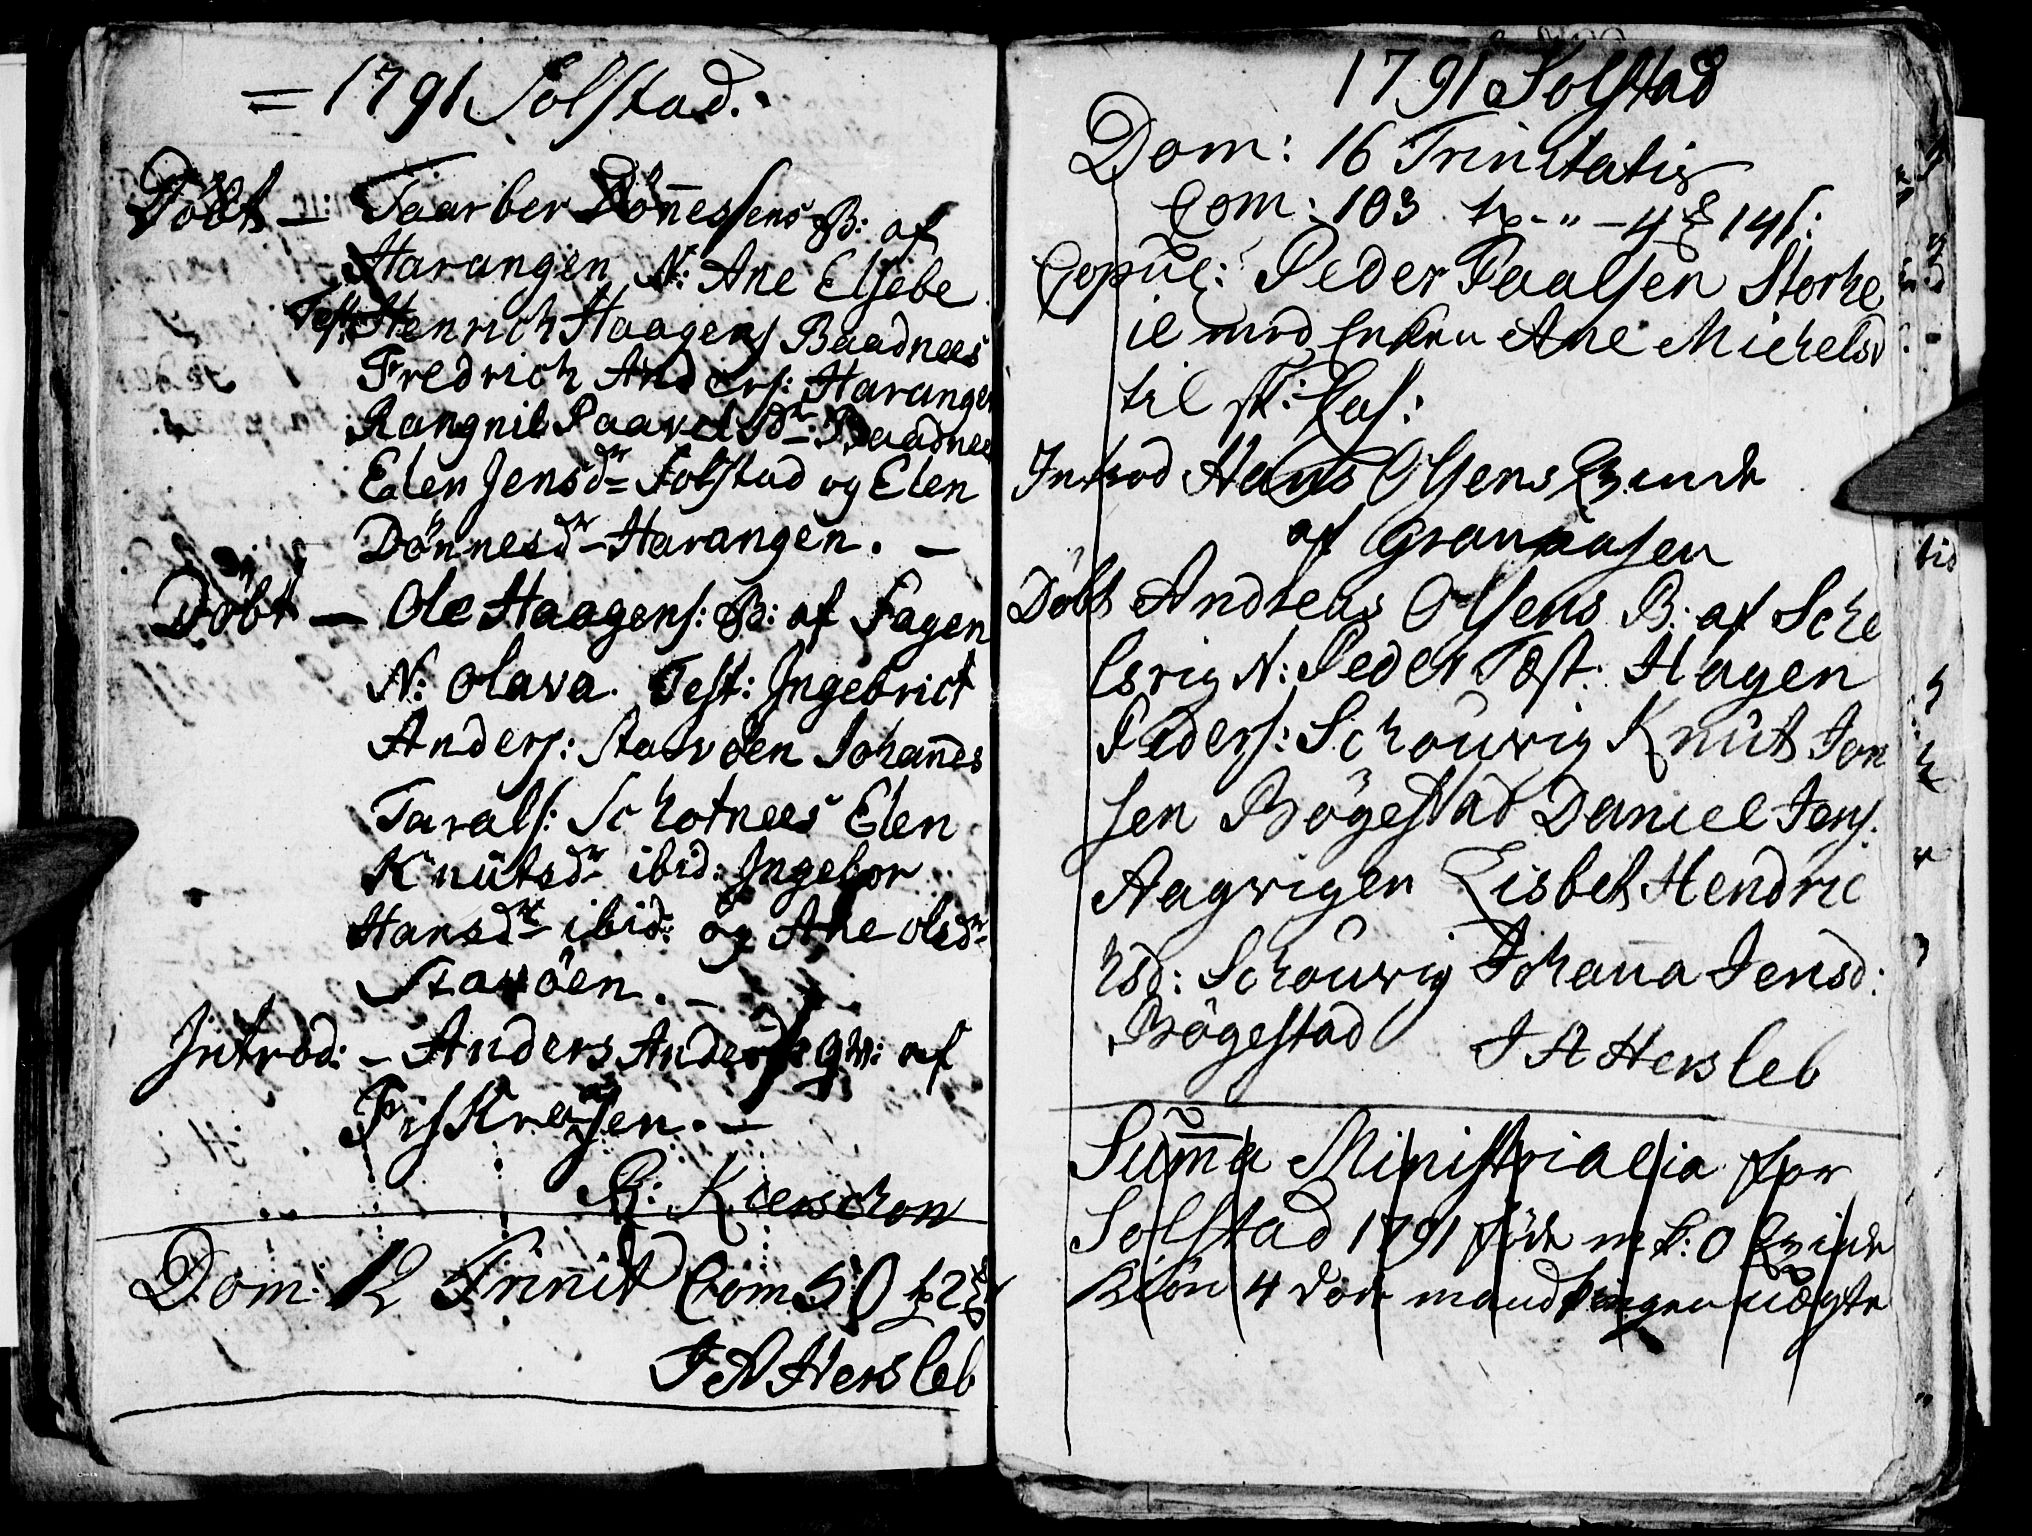 = 1791 Solstad.
Döbt — Taarber Dönnesens B: af
Harangen N: Ane Elsebe
Test: Henrich Haagens Baadnees
Fredrich Anders: Harangen
Rangnil Paavelsdr Baadnees
Elen Jensdr Solstad og Elen
Dönnesdr Harangen. —
Döbt — Ole Haagens: B: af Fagen
N: Olava. Test: Ingebrict
Anders: Stavöen Johannes
Tarals: Schotnees Elen
Knütsdr ibid: Ingebor
Hansdr ibid: og Ane Olsdr
Stavöen. —
Introd: — Anders Anders qv: af
—
B: Kierschow
Dom: 12 Trinit Com 50
J A Hersleb
1791 Solstad
Dom: 16 Trinitatis
Com: 103 - " - 4 14 s:
Copul: Peder Paalsen Storhe
il med Enken Ane Michelsd
til
Introd Hans Olsens Qvinde
af Graneaasen
Döbt Andreas Olsens B: af Sche
lsvig N: Peder Test: Hagen
Peders: Schouvig Knüt Jon
sen Bögestad Daniel Jens.
Aagvigen Lisbet Hendric
hsd: Schouvig Johanna Jensd:
Bögestad J A Hersleb
Summa Ministrialia for
Solstad 1791 föde m k: 0 Qvinde
Kiön 4 döde mandkiøn ægte